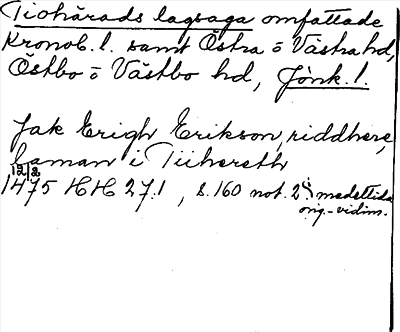 Tiohärads lagsaga omfattade
Kronob. l. samt Östra o Västra hd,
Östbo o Västbo hd, Jönk. l.
Jak Erigh Erikson, riddhere,
laman i Tiihereth
12/2
1475 HH 27:1, s. 160 not. 2 i medeltida
orig.-vidim.